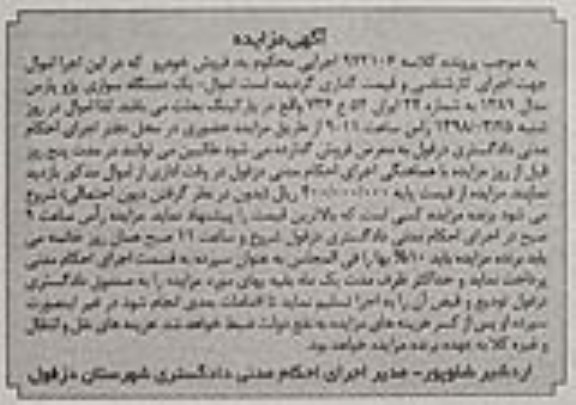 آگهی مزایده
به موجب پرونده کلاسه ۹۷۲۱۰۶ اجرایی محکوم به فروش خودرو که در این اجرا اموال
جهت اجرای کارشناسی و قیمت گذاری گردیده است اموال: یک دستگاه سواری پژو پارس
مدل ۱۳۸۹ به شماره ۲۲ ایران ۵۳ ج ۷۳۶ واقع در پارکینگ بعثت می باشد لذا اموال در روز
شنبه ۱۳۹۸/۰۳/۲۵ راس ساعت ۹-۱۱ از طریق مزایده حضوری در محل دفتر اجرای احکام
مدنی دادگستری دزفول به معرض فروش گذارده می شود طالبین می توانند در مدت پنج روز
قبل از روز مزایده با هماهنگی اجرای احکام مدنی دزفول در وقت اداری از اموال مذکور بازدید
نمایند. مزایده از قیمت پایه ریال (بدون در نظر گرفتن دیون احتمالی) شروع
می شود برنده مزایده کسی است که بالاترین قیمت را پیشنهاد نماید. مزایده رأس ساعت ۹
صبح در اجرای احکام مدنی دادگستری دزفول شروع و ساعت ۱۱ صبح همان روز خاتمه می
یابد برنده مزایده باید ۱۰% بها را فی المجلس به عنوان سپرده به قسمت اجرای احکام مدنی
پرداخت نماید و حداکثر ظرف مدت یک ماه بقیه بهای مورد مزایده را به صندوق دادگستری
دزفول تودیع و قبض آن را به اجرا تسلیم نماید تا اقدامات بعدی انجام شود در غیر اینصورت
سپرده او پس از کسر هزینه های مزایده به نفع دولت ضبط خواهد شد. هزینه های نقل و انتقال
و غیره کلا به عهده برنده مزایده خواهد بود.
اردشیر شاوپور- مدیر اجرای احکام مدنی دادگستری شهرستان دزفول